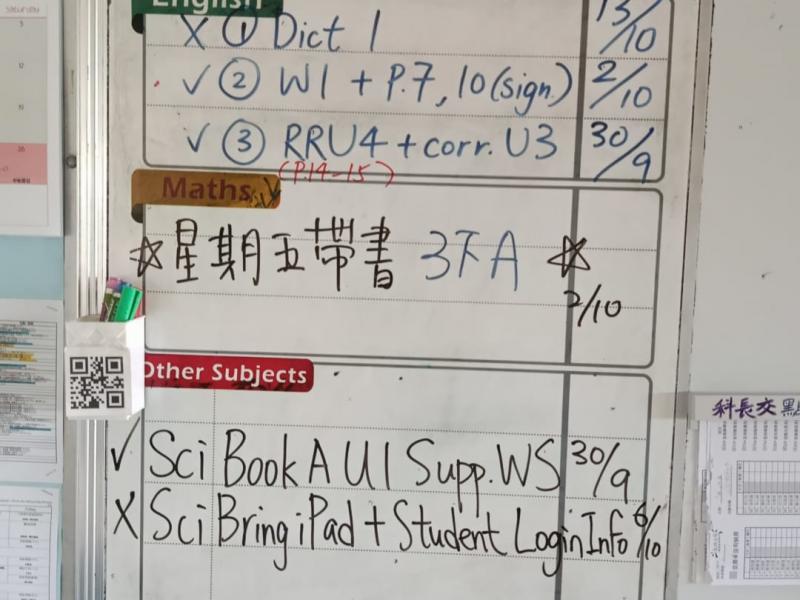 Saturday
English
X ① Dict 1 13/10
✓ ② W1 + P.7, 10 (sign.) 2/10
✓ ③ RRU4 + corr. U3 30/9
(P.14-15)
Maths
☆ 星期五帶書 3下A ☆
2/10
Other Subjects
✓ Sci Book A U1 Supp. WS 30/9
X Sci Bring iPad + Student Login Info 6/10
科長交